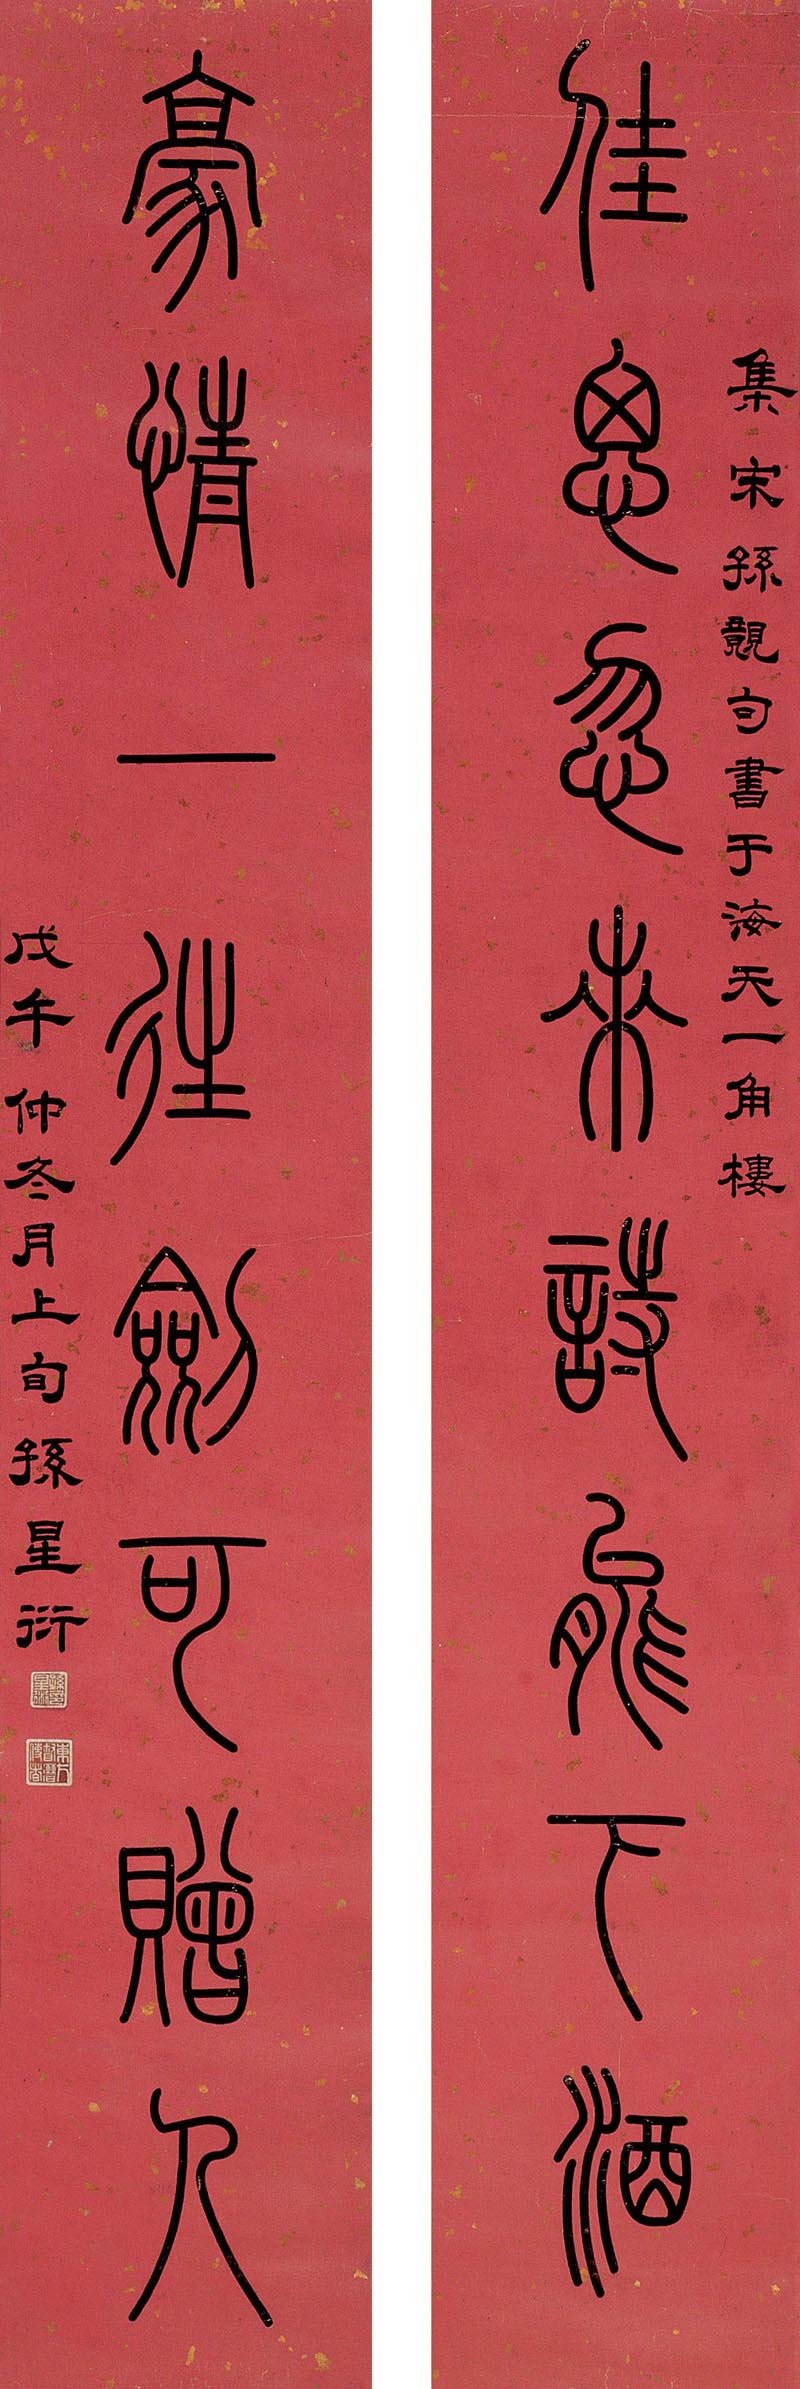 集宋孫覿句書于海天一角樓
佳思忽來詩能下酒
豪情一往劍可贈人
戊午仲冬月上旬孫星衍